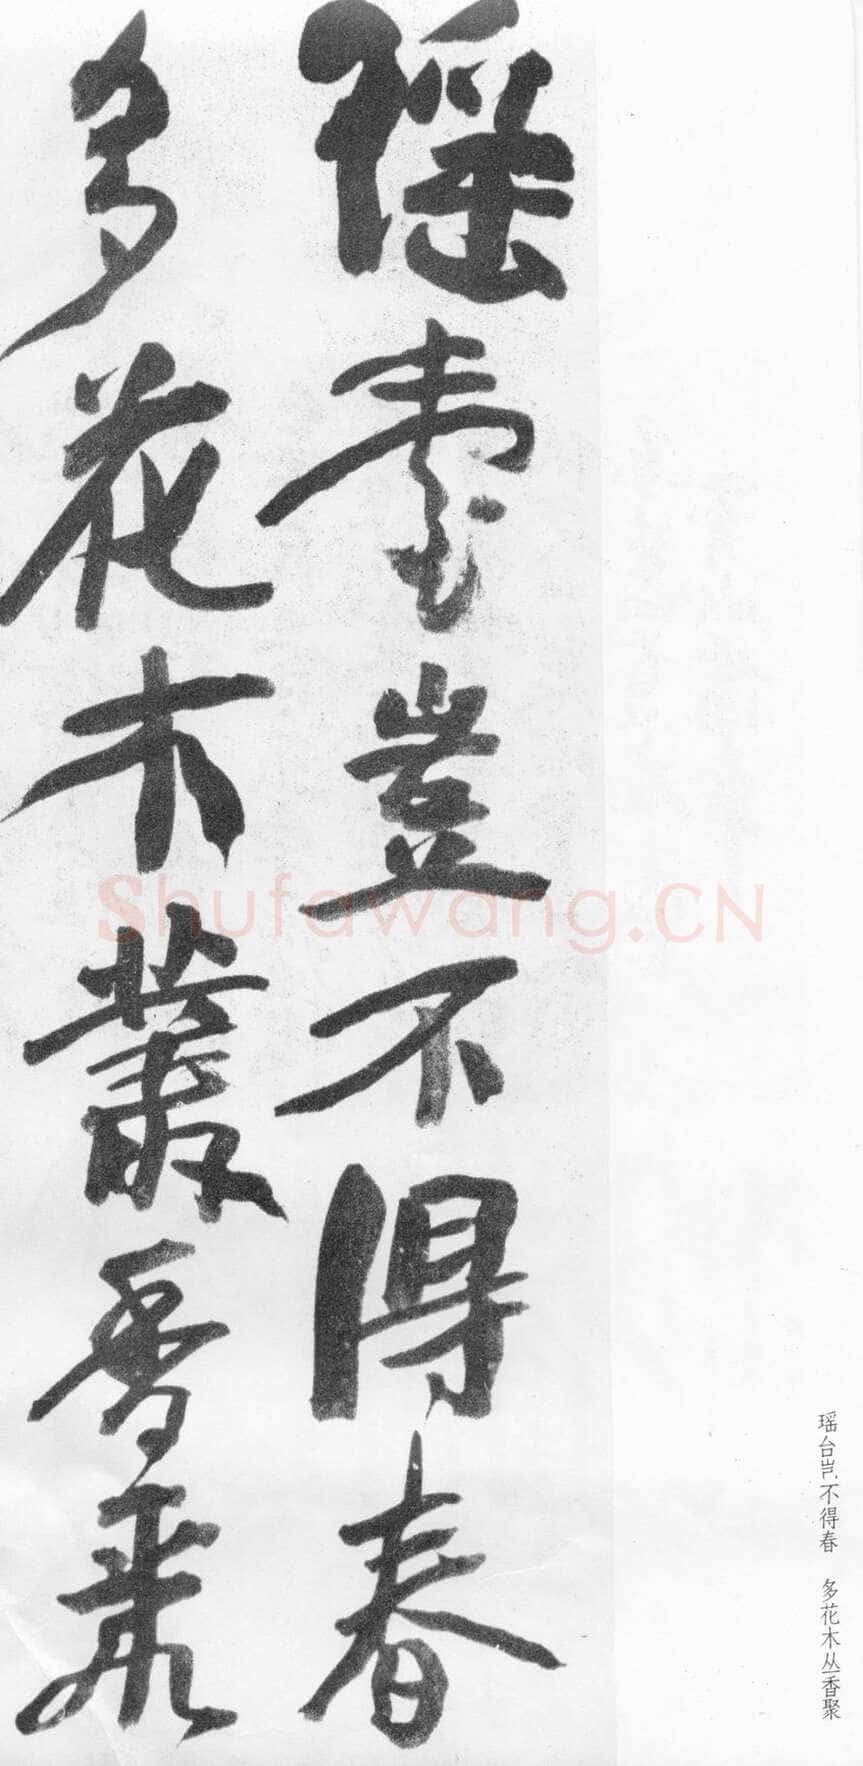 瑤臺豈不得春
多花木叢香聚
瑶台岂不得春 多花木丛香聚
Shufawang.CN